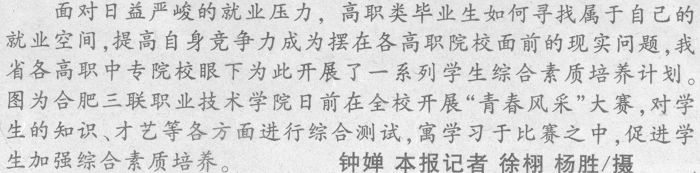 面对日益严峻的就业压力，高职类毕业生如何寻找属于自己的
就业空间，提高自身竞争力成为摆在各高职院校面前的现实问题，我
省各高职中专院校眼下为此开展了一系列学生综合素质培养计划。
图为合肥三联职业技术学院日前在全校开展“青春风采”大赛，对学
生的知识、才艺等各方面进行综合测试，寓学习于比赛之中，促进学
生加强综合素质培养。 钟婵 本报记者 徐栩 杨胜/摄